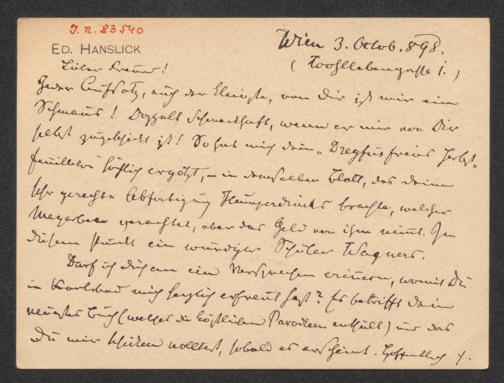 I.N. 83540
ED. HANSLICK
Wien 3. Octob. 898.
Lieber Freund!
Jeder Aufsatz, auch der kleinste, von Dir ist mir ein
Schmaus! Doppelt schmackhaft, wenn er mir von Dir
selbst zugeschickt ist! So hat mich Dein
feuilleton höchlich ergötzt, – in demselben Blatt, das Deine
sehr gerechte Abfertigung Humperdincks brachte, welcher
Meyerbeer verachtet, aber das Geld von ihm nimmt. In
diesem Punkt ein würdiger Schüler Wagners.
Darf ich Dich an ein Versprechen erinnern, womit Du
in Karlsbad mich herzlich erfreut hast? Es betrifft Dein
neuestes Buch (welches die köstlichen Parodien enthält) und das
Du mir schicken wolltest, sobald es erscheint. Hoffentlich